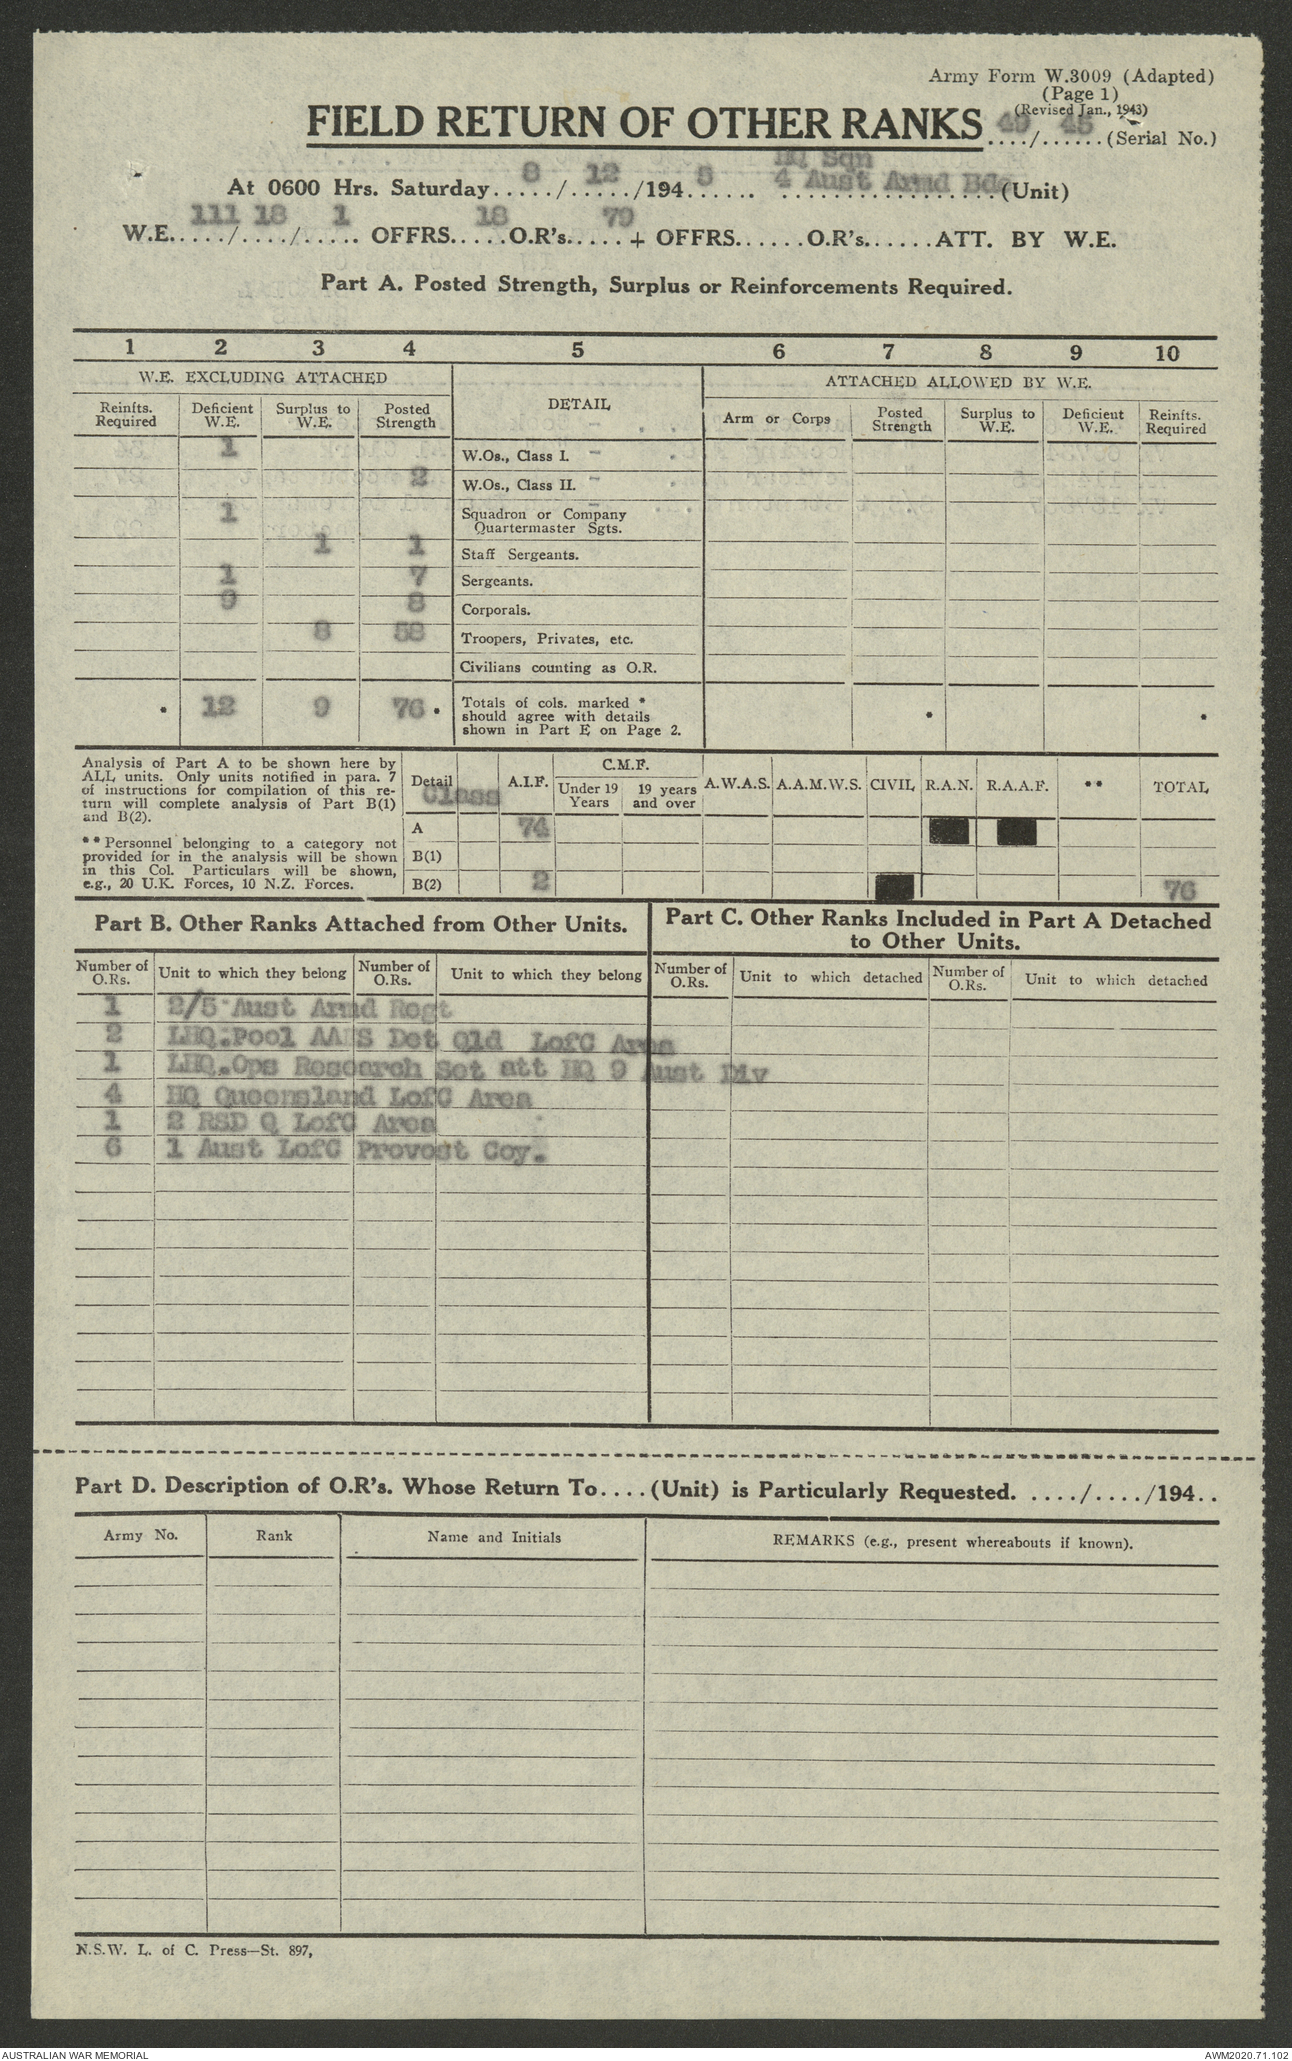 Army Form W.3009 (Adapted)
(Page 1)
(Revised Jan., 1943)
FIELD RETURN OF OTHER RANKS 49/45 (Serial No.)
HQ Sqn
At 0600 Hrs. Saturday 8/12/1945 4 Aust Armd Bde (Unit)
W.E. 111/18/1 OFFRS. 18 O.R's. 79 + OFFRS......O.R's......ATT. BY W.E.
Part A. Posted Strength, Surplus or Reinforcements Required.
1 2 3 4 5 6 7 8 9 10
W.E. EXCLUDING ATTACHED DETAIL ATTACHED ALLOWED BY W.E.
Reinfts. Required Deficient W.E. Surplus to W.E. Posted Strength Arm or Corps Posted Strength Surplus to W.E. Deficient W.E. Reinfts. Required
1 W.Os., Class I.
2 W.Os., Class II.
1 Squadron or Company Quartermaster Sgts.
1 1 Staff Sergeants.
1 7 Sergeants.
9 8 Corporals.
8 58 Troopers, Privates, etc.
Civilians counting as O.R.
* 12 9 76 * Totals of cols. marked * should agree with details shown in Part E on Page 2. * *
Analysis of Part A to be shown here by
ALL units. Only units notified in para. 7
of instructions for compilation of this re-
turn will complete analysis of Part B(1)
and B(2).
** Personnel belonging to a category not
provided for in the analysis will be shown
in this Col. Particulars will be shown,
e.g., 20 U.K. Forces, 10 N.Z. Forces.
Detail Class A.I.F. C.M.F. Under 19 Years 19 years and over A.W.A.S. A.A.M.W.S. CIVIL R.A.N. R.A.A.F. ** TOTAL
A 74
B(1)
B(2) 2 76
Part B. Other Ranks Attached from Other Units.
Part C. Other Ranks Included in Part A Detached
to Other Units.
Number of O.Rs. Unit to which they belong Number of O.Rs. Unit to which they belong Number of O.Rs. Unit to which detached Number of O.Rs. Unit to which detached
1 2/5 Aust Armd Regt
2 LHQ.Pool AAPS Det Qld LofC Area
1 LHQ.Ops Research Sec att HQ 9 Aust Div
4 HQ Queensland LofC Area
1 2 RSD Q LofC Area
6 1 Aust LofC Provost Coy.
Part D. Description of O.R's. Whose Return To....(Unit) is Particularly Requested. ..../..../194..
Army No. Rank Name and Initials REMARKS (e.g., present whereabouts if known).
N.S.W. L. of C. Press—St. 897,
AUSTRALIAN WAR MEMORIAL
AWM2020.71.102